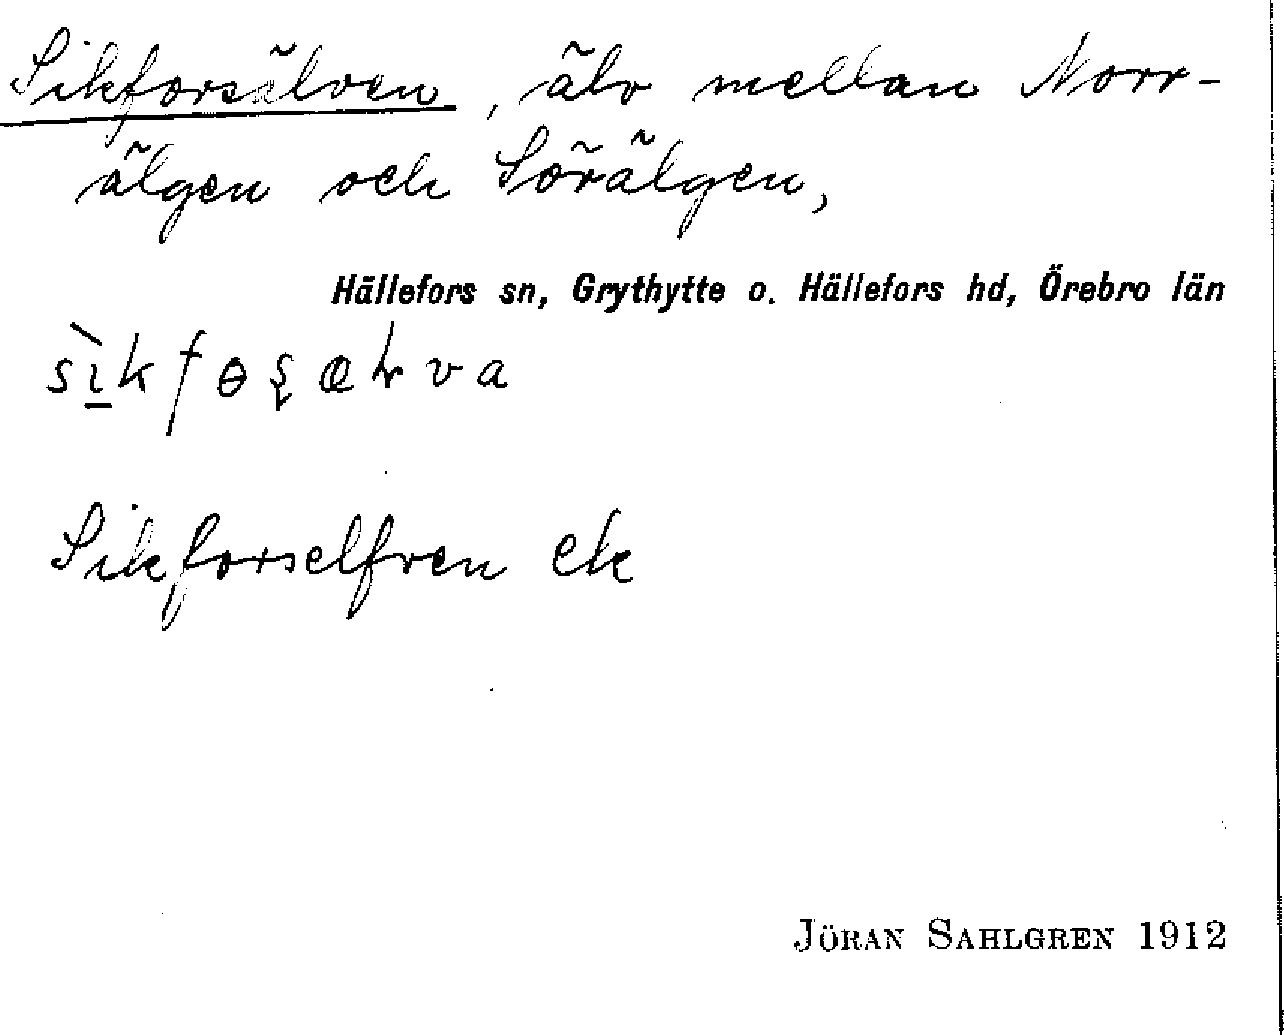 Sikforsälven, älv mellan Norr-
älgen och Sörälgen,
Hällefors sn, Grythytte o. Hällefors hd, Örebro län
Sikforselfven ek
JÖRAN SAHLGREN 1912